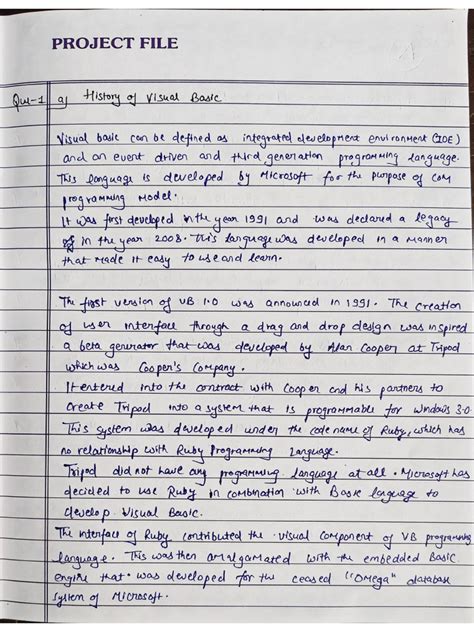 PROJECT FILE
Que-1 a) History of Visual Basic
Visual basic can be defined as integrated development environment (IDE)
and an event driven and third generation programming language.
This language is developed by Microsoft for the purpose of COM
programming model.
It was first developed in the year 1991 and was declared a legacy
in the year 2008. This language was developed in a manner
that made it easy to use and learn.
The first version of VB 1.0 was announced in 1991. The creation
of user interface through a drag and drop design was inspired
a beta generator that was developed by Alan Cooper at Tripod
which was Cooper's Company.
It entered into the contract with Cooper and his partners to
create Tripod into a system that is programmable for Windows 3.0
This system was developed under the code name of Ruby, which has
no relationship with Ruby Programming Language.
Tripod did not have any programming language at all. Microsoft has
decided to use Ruby in combination with Basic language to
develop Visual Basic.
The interface of Ruby contributed the visual component of VB programming
language. This was then amalgamated with the embedded Basic
engine that was developed for the ceased "Omega" database
system of Microsoft.